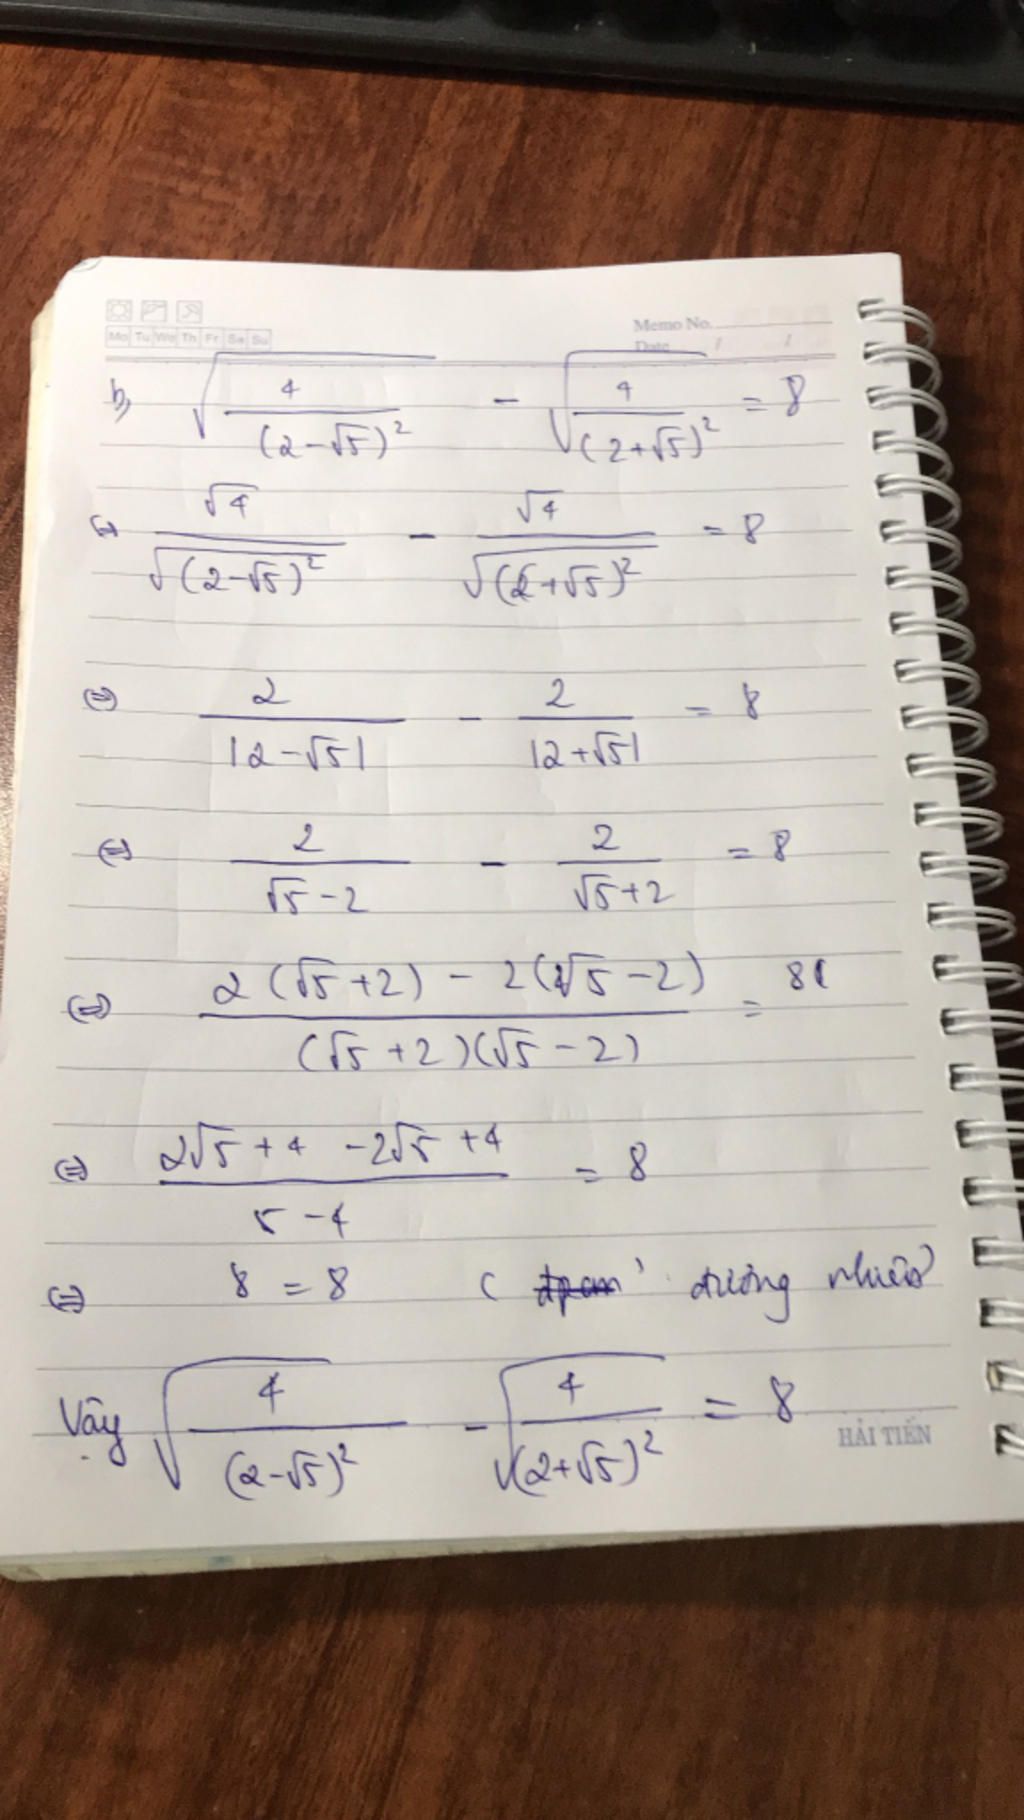 Mo Tu We Th Fr Sa Su
Memo No.
Date / /
b, √(4/(2-√5)²) - √(4/(2+√5)²) = 8
⇔ √4/√((2-√5)²) - √4/√((2+√5)²) = 8
⇔ 2/|2-√5| - 2/|2+√5| = 8
⇔ 2/(√5-2) - 2/(√5+2) = 8
⇔ (2(√5+2) - 2(√5-2))/((√5+2)(√5-2)) = 8
⇔ (2√5+4 -2√5+4)/(5-4) = 8
⇔ 8 = 8 ( đương nhiên)
Vậy √(4/(2-√5)²) - √(4/(2+√5)²) = 8
HẢI TIẾN